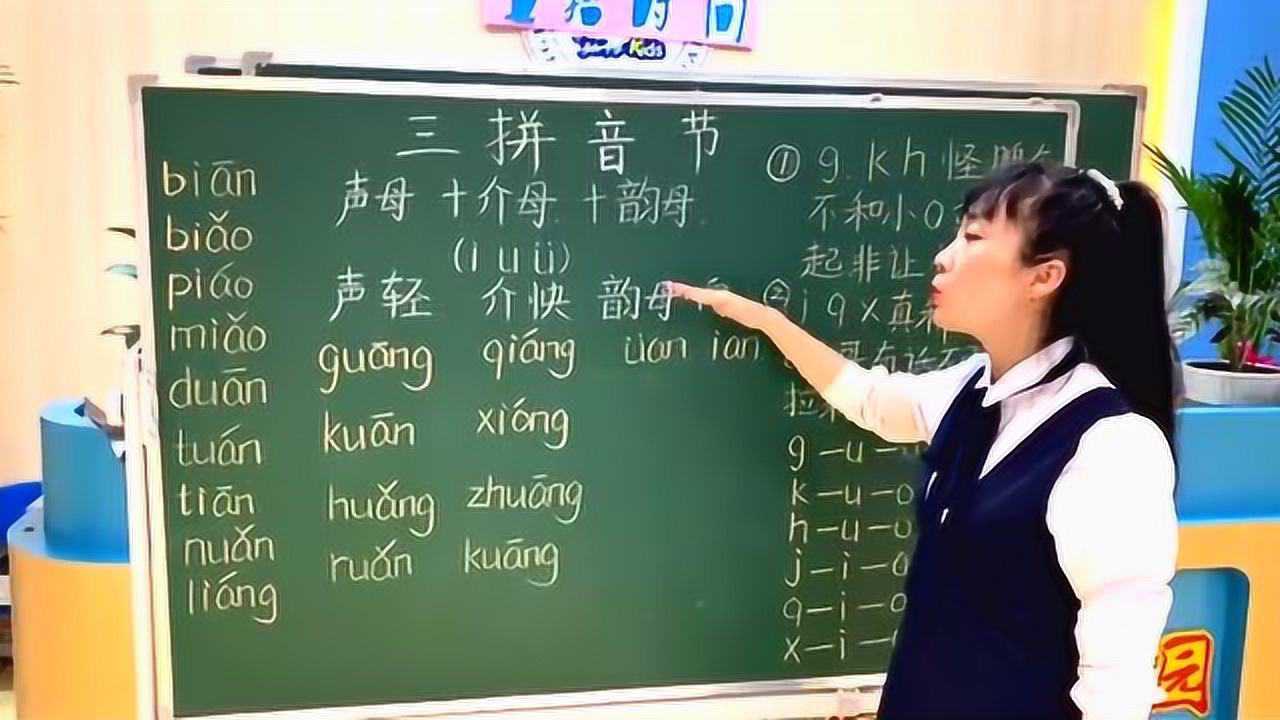 Kids
三拼音节
biān
biǎo
piáo
miǎo
duān
tuán
tiān
nuǎn
liáng
声母+介母+韵母
(i u ü)
声轻 介快 韵母
guāng qiáng üan ian
kuān xióng
huǎng zhuāng
ruǎn kuāng
① g k h 怪
不和小o
起非让
② j q x 真
拉
g-u-
k-u-o
h-u-o
j-i-a
q-i-a
x-i-
园